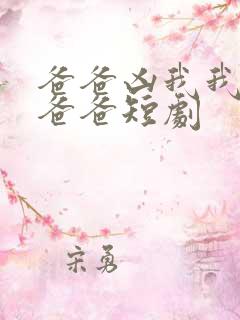 爸爸凶我我
爸爸短劇
宋勇